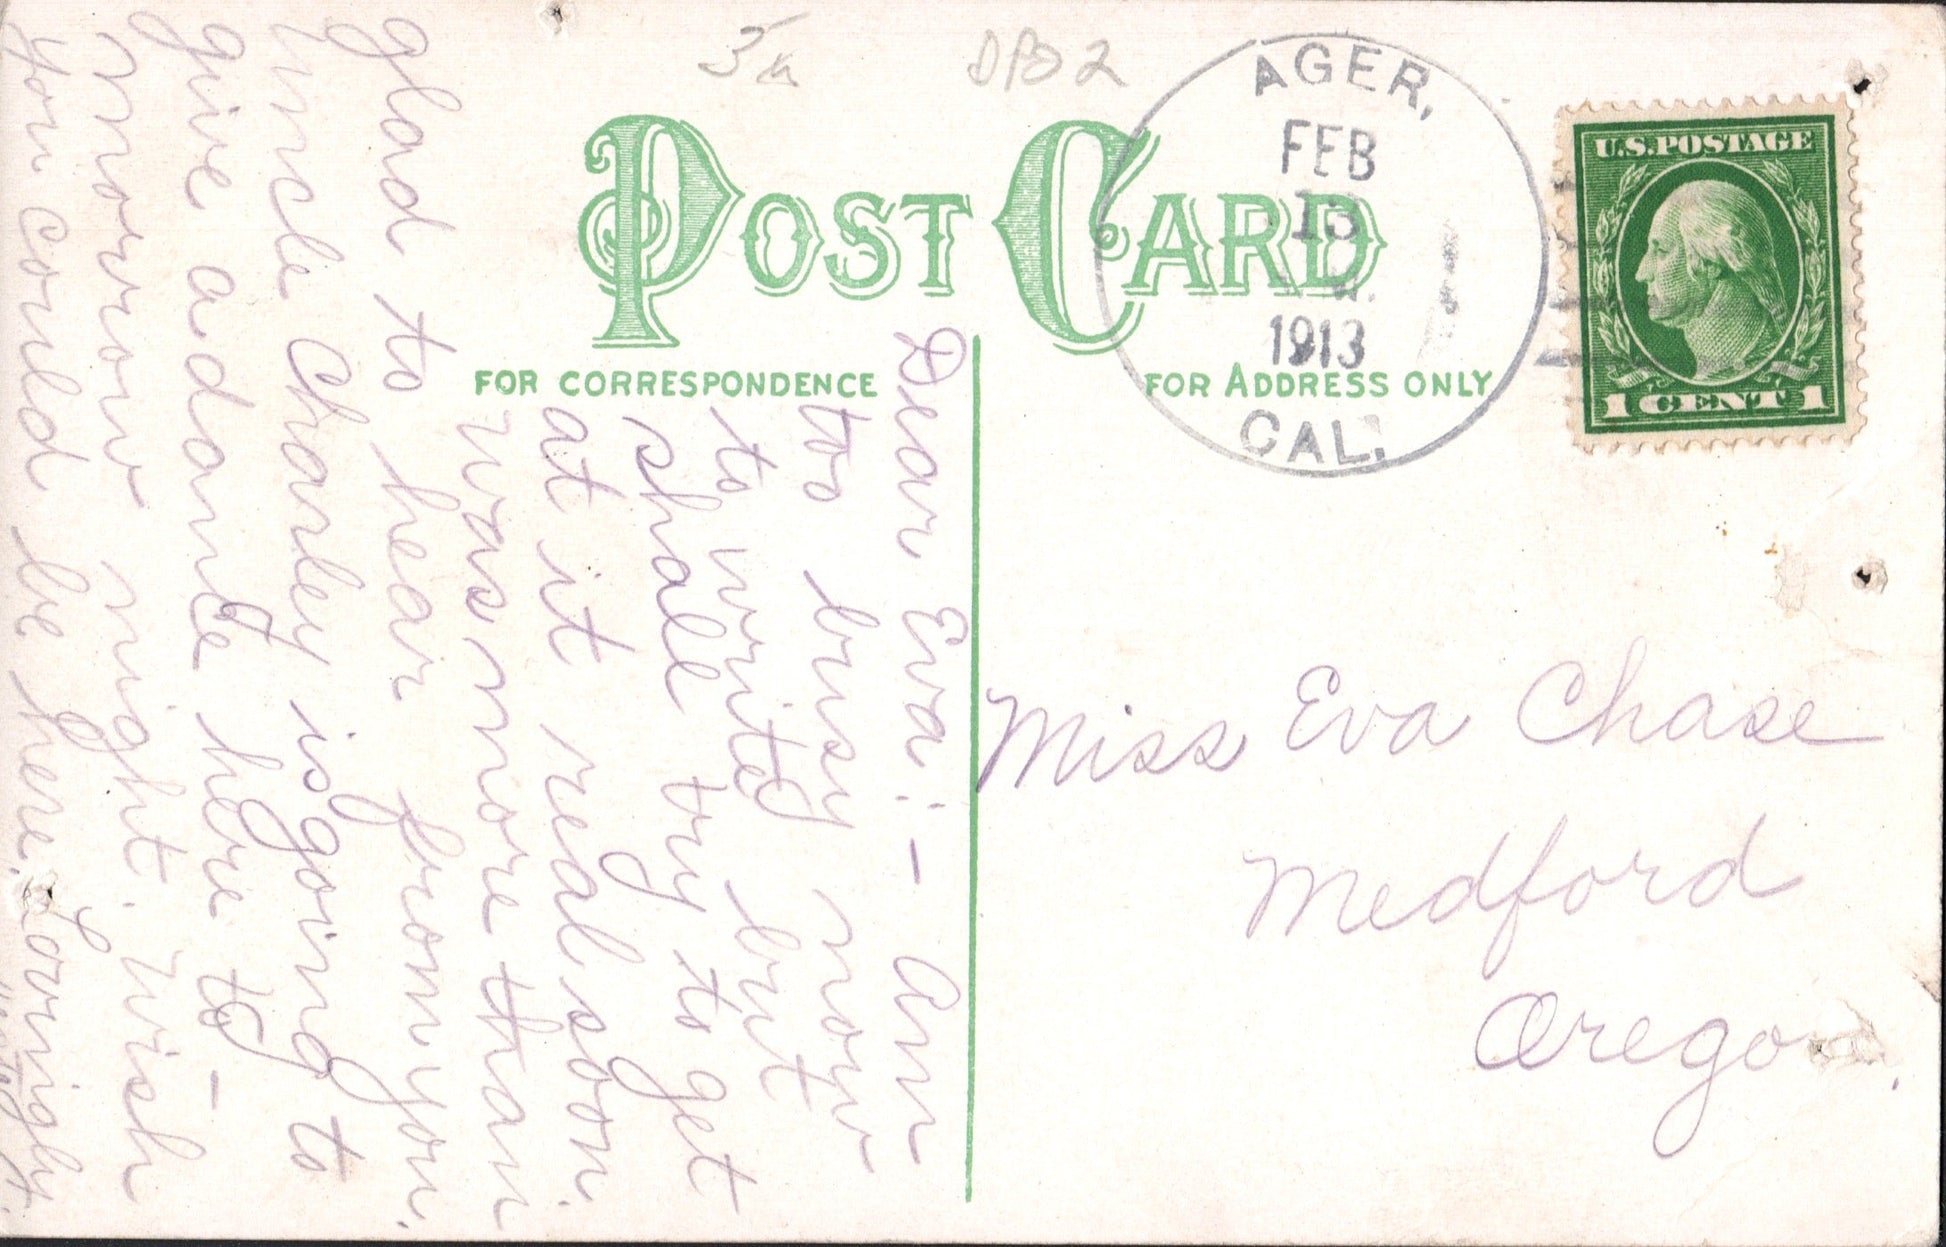 5
DPO 2
AGER,
FEB
13
1913
CAL.
U.S. POSTAGE
1 CENT 1
POST CARD
FOR CORRESPONDENCE
FOR ADDRESS ONLY
Dear Eva:- Am
too busy now
to write, but
shall try to get
at it real soon.
Was more than
glad to hear from you.
Uncle Charley is going to
give a dance here to-
morrow night. Wish
you could be here. Lovingly,
Miss Eva Chase
Medford
Orego